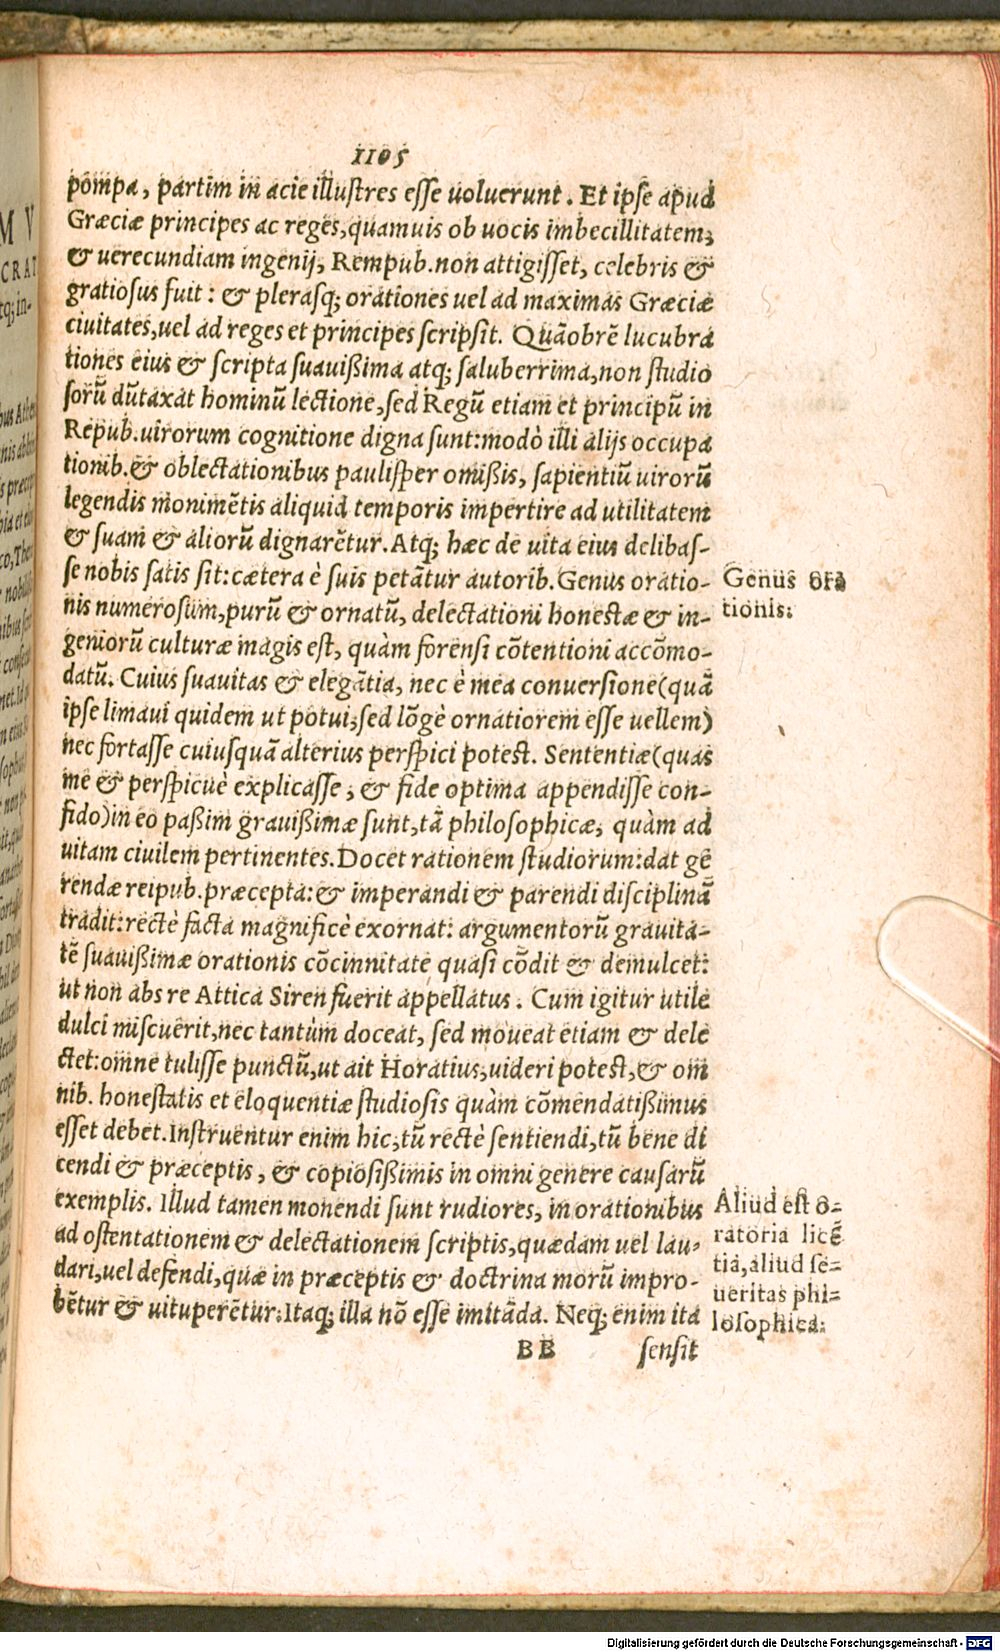 1105
pompa, partim in acie illustres esse uoluerunt. Et ipse apud
Græciæ principes ac reges, quamuis ob uocis imbecillitatem,
& uerecundiam ingenij, Rempub. non attigisset, celebris &
gratiosus fuit: & plerasq; orationes uel ad maximas Græciæ
ciuitates, uel ad reges et principes scripsit. Quãobrẽ lucubra
tiones eius & scripta suauißima atq; saluberrima, non studio
sorũ dũtaxat hominũ lectione, sed Regũ etiam et principũ in
Repub. uirorum cognitione digna sunt: modò illi alijs occupa
tionib. & oblectationibus paulisper omißis, sapientiũ uirorũ
legendis monimẽtis aliquid temporis impertire ad utilitatem
& suam & aliorũ dignarẽtur. Atq; hæc de uita eius delibas-
se nobis satis sit: cætera è suis petãtur autorib. Genus oratio-
nis numerosum, purũ & ornatũ, delectationi honestæ & in-
geniorũ culturæ magis est, quàm forensi cõtentioni accõmo-
datũ. Cuius suauitas & elegãtia, nec è mea conuersione (quã
ipse limaui quidem ut potui, sed lõgè ornatiorem esse uellem)
nec fortasse cuiusquã alterius perspici potest. Sententiæ (quas
me & perspicuè explicasse, & fide optima appendisse con-
fido) in eo paßim grauißimæ sunt, tã philosophicæ, quàm ad
uitam ciuilem pertinentes. Docet rationem studiorum: dat gẽ
rendæ reipub. præcepta: & imperandi & parendi disciplinã
tradit: rectè facta magnificè exornat: argumentorũ grauita-
tẽ suauißimæ orationis cõcinnitate quasi cõdit & demulcet:
ut non abs re Attica Siren fuerit appellatus. Cum igitur utile
dulci miscuerit, nec tantùm doceat, sed moueat etiam & dele
ctet: omne tulisse punctũ, ut ait Horatius, uideri potest, & om
nib. honestatis et eloquentiæ studiosis quàm cõmendatißimus
esset debet. Instruentur enim hic, tũ rectè sentiendi, tũ bene di
cendi & præceptis, & copiosißimis in omni genere causarũ
exemplis. Illud tamen monendi sunt rudiores, in orationibus
ad ostentationem & delectationem scriptis, quædam uel lau-
dari, uel defendi, quæ in præceptis & doctrina morũ impro-
bẽtur & uituperẽtur: Itaq; illa nõ esse imitãda. Neq; enim ita
BB sensit
Genus ora
tionis.
Aliud est o-
ratoria licẽ
tia, aliud se-
ueritas phi-
losophica.
Digitalisierung gefördert durch die Deutsche Forschungsgemeinschaft - DFG